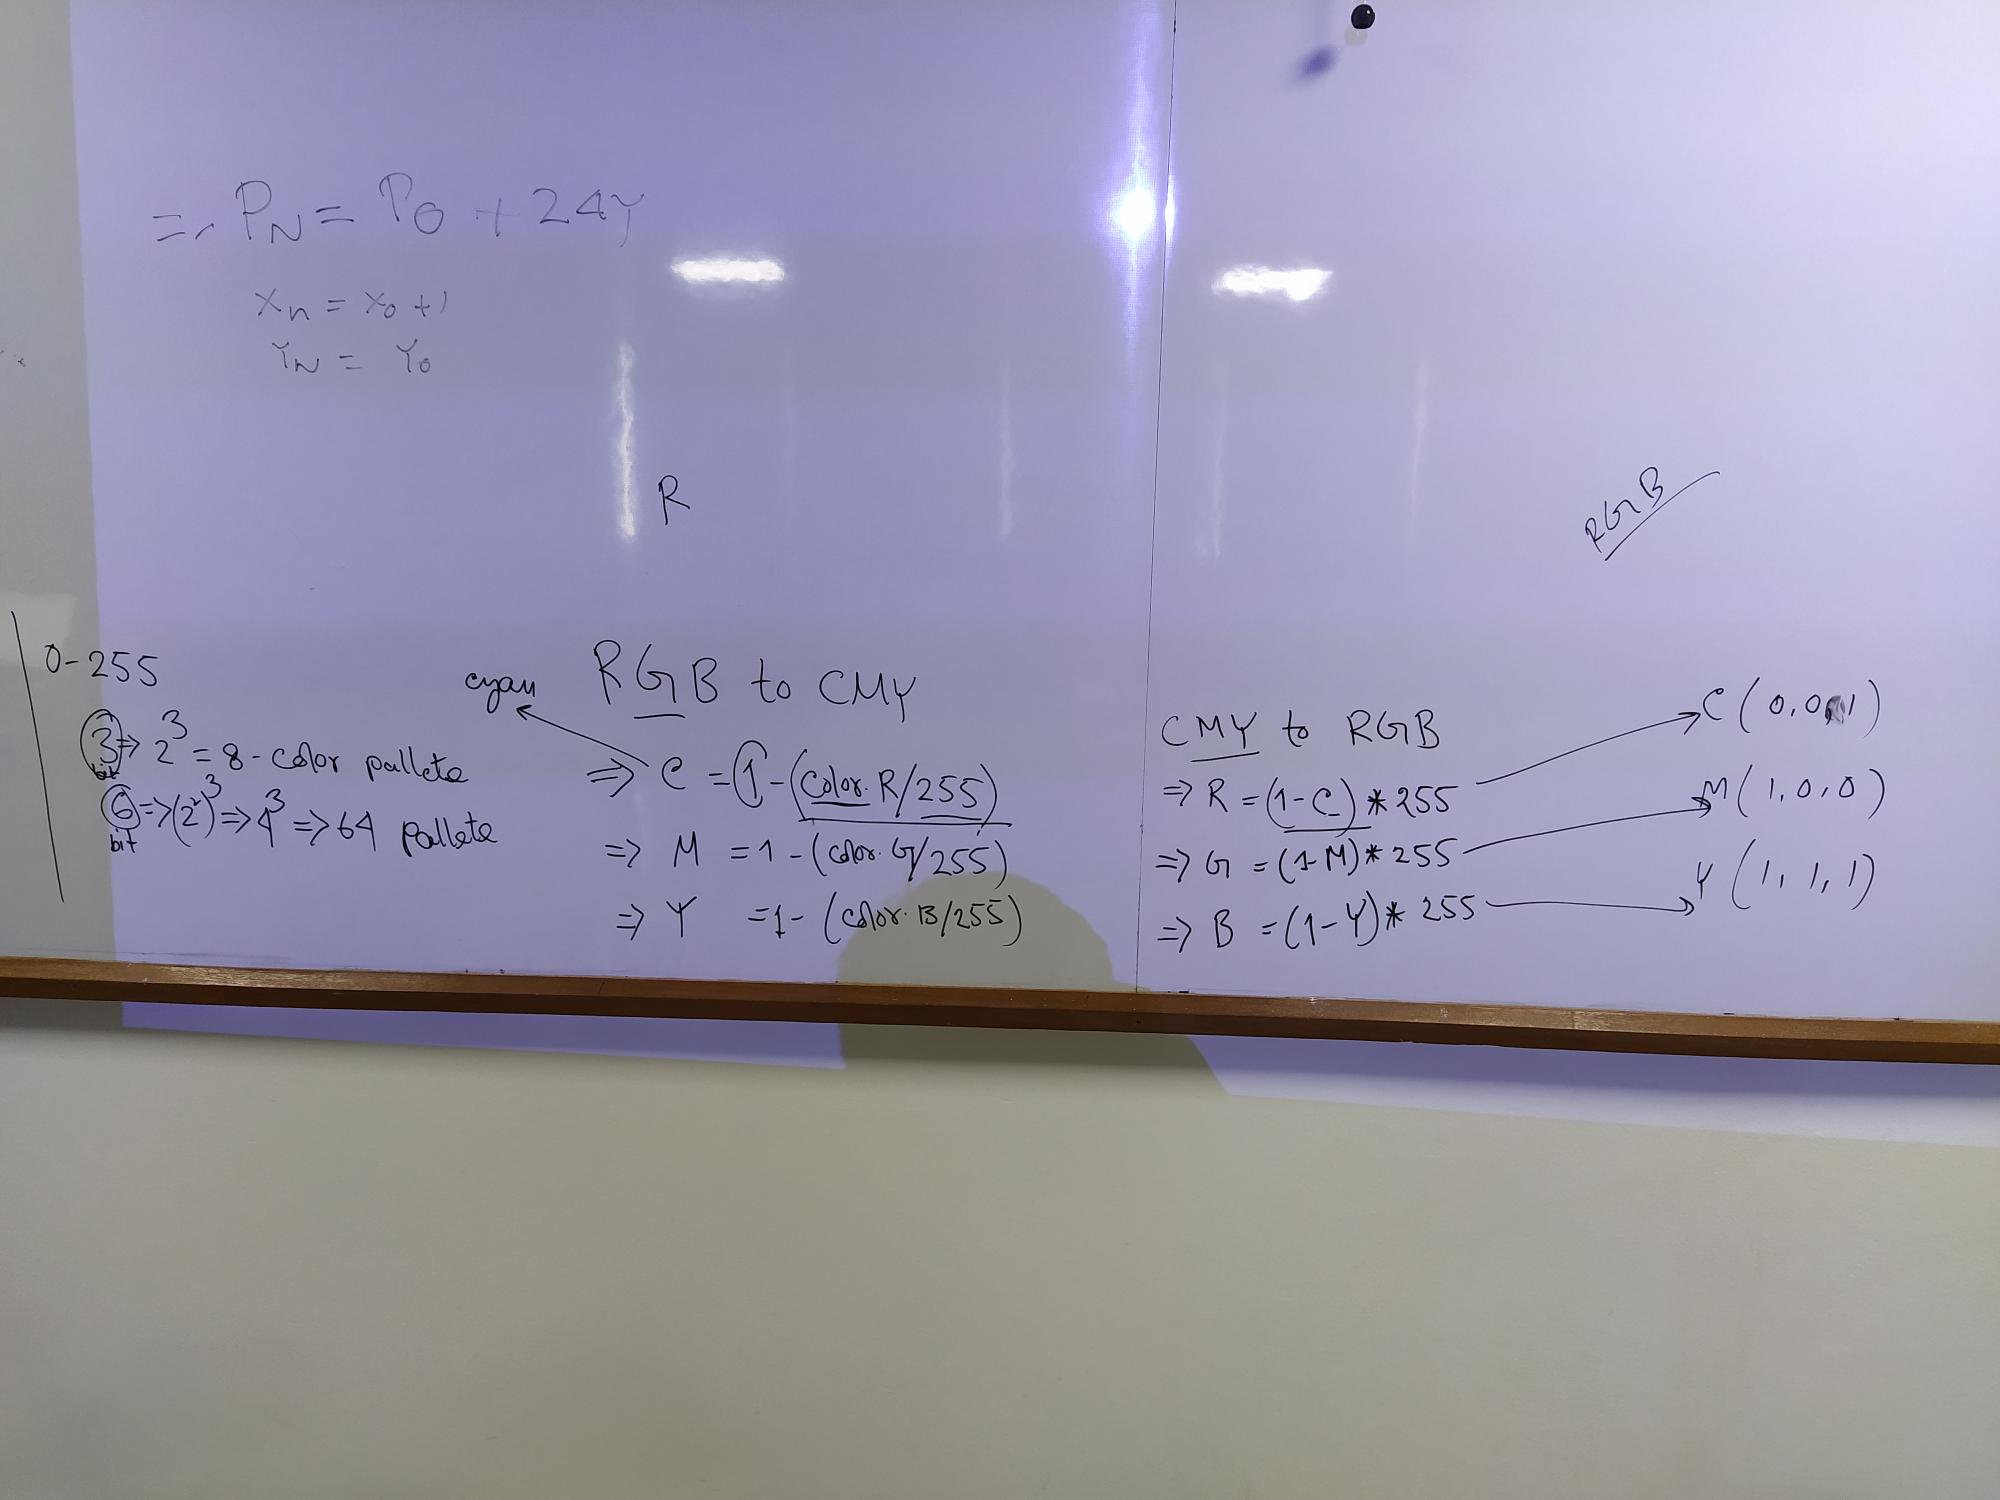 => PN = PO + 24Y
Xn = X0 + 1
YN = Y0
R
RGB
0-255
3 bit => 2³ = 8 - color pallete
6 bit => (2²)³ => 4³ => 64 pallete
cyan
RGB to CMY
=> C = 1 - (Color.R/255)
=> M = 1 - (color.G/255)
=> Y = 1 - (color.B/255)
CMY to RGB
=> R = (1-C) * 255
=> G = (1-M) * 255
=> B = (1-Y) * 255
C (0,0,1)
M (1,0,0)
Y (1,1,1)